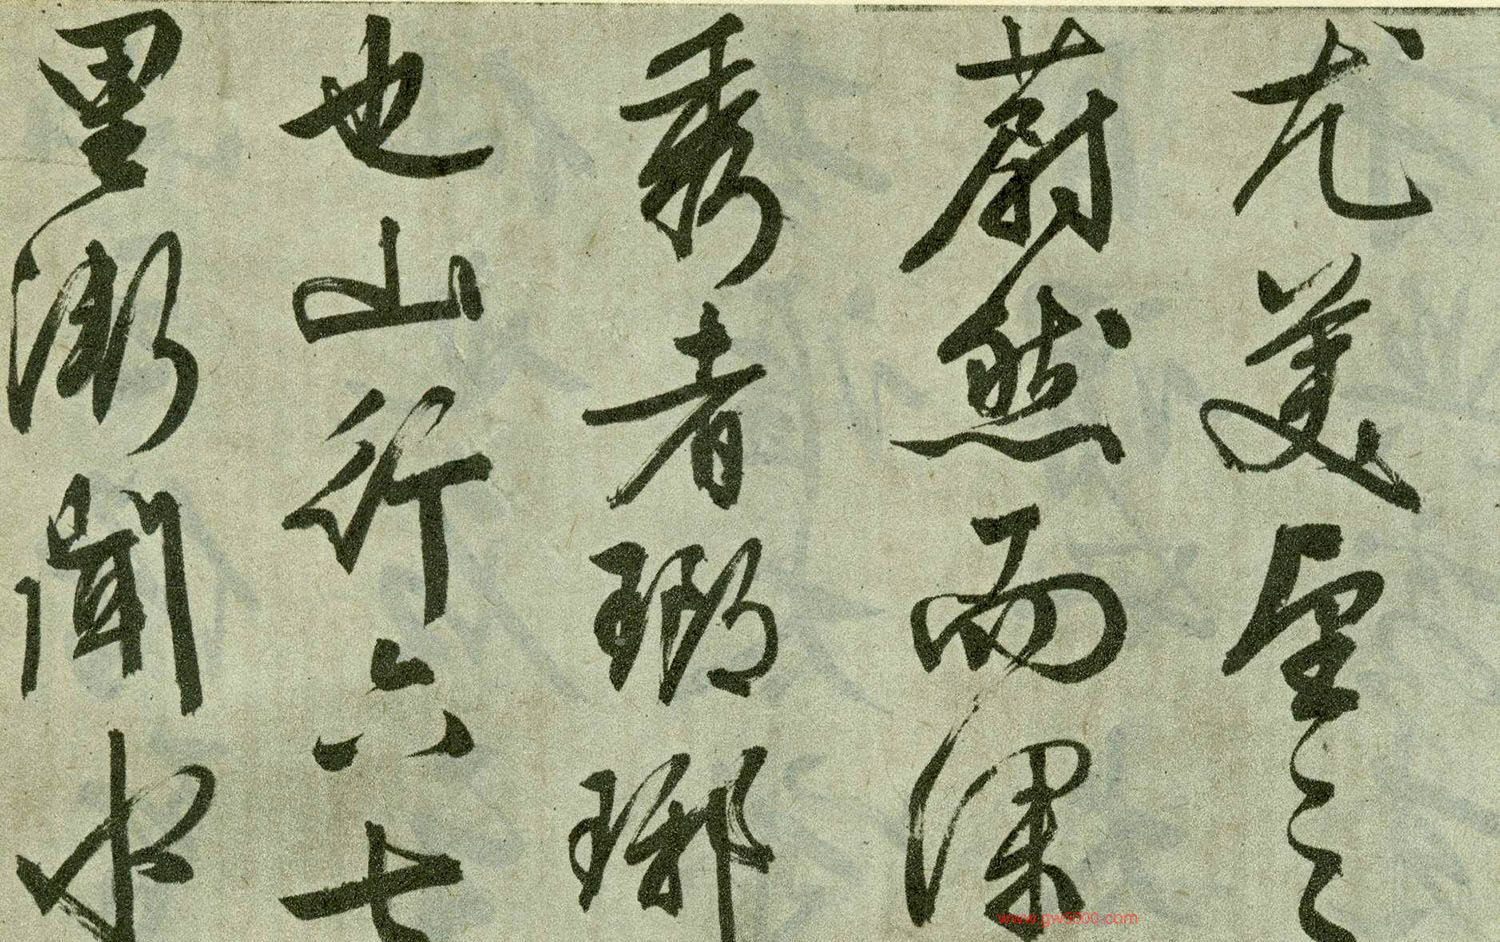 尤美望之
蔚然而深
秀者瑯琊
也山行六七
里漸聞水
www.gw5000.com